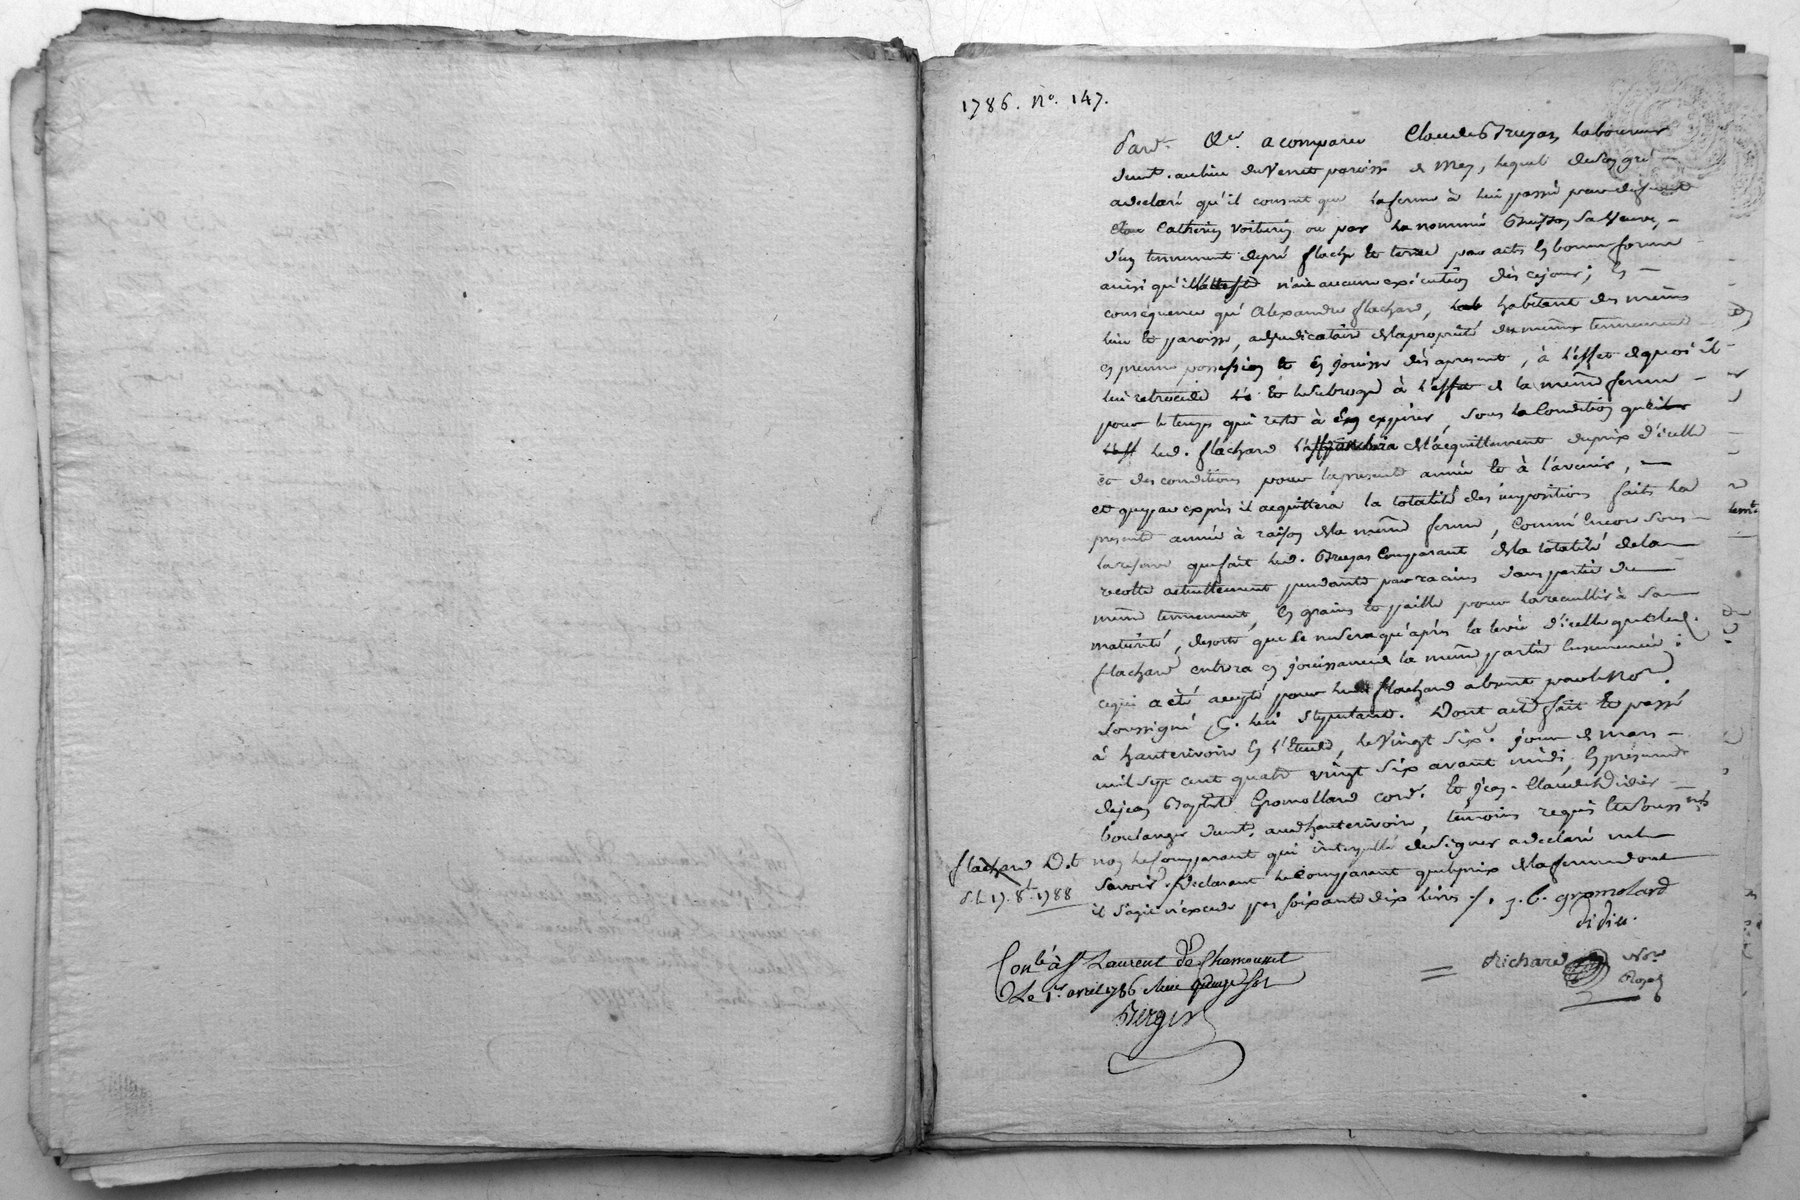 1786. No. 147.
Pard.t Ns. a comparu Claude laboureur
demt. au lieu du Verret paroisse de Mey, lequel de son gré
a declaré qu'il consent que la ferme à lui passée par
Catherin Voiturin ou par la nommé sa veuve,
d'un tennement de pré flache et terre par acte en bonne forme
ainsi qu'il n'ait aucune exécution dès ce jour; en
conséquence qu'Alexandre flachard, habitant des mêmes
lieu et paroisse, adjudicataire de la propriété du même tennement
en prenne possession et en jouisse dès apresent, à l'effet de quoi il
lui retrocede et le subroge à l'effet de la même ferme
pour le temps qui reste à expirer, sous la Condition que
led. flachard de l'acquittement du prix d'icelle
et des conditions pour la presente année et à l'avenir,
et que par exprès il acquittera la totalité des impositions faites la
presente année à raison de la même ferme, comme encore sous
la reserve que fait led. Comparant de la totalité de la
recolte actuellement pendante par racines dans partie du
même tennement, en grains et paille pour la recueillir à sa
maturité, desorte que ce ne sera qu'après la levée d'icelle que led.
flachard entrera en jouissance de la même partie Ensemencée;
ce qui a été accepté pour led. flachard absent par le No.re
soussigné p. lui stipulant. Dont acte fait et passé
à hauterivoire en l'Etude, le Vingt six.e jour de mars
mil sept cent quatre vingt six avant midi, en présence
de jean Baptiste Gromollard cord.r et jean-Claude Didier
boulanger demt. aud. hauterivoire, temoins requis Et soussignés
non le comparant qui interpellé de signer a declaré ne le
savoir. Declarant le Comparant que le prix de la ferme dont
il s'agit n'excede pas soixante dix livres ./. j. b. gromolard
didier.
flachard D.t
d. l. 17. 8.e 1788
Richard No.re
Royal
Con.lé à St Laurent de Chamousset
Le 1.er avril 1786 Reçu quinze sols